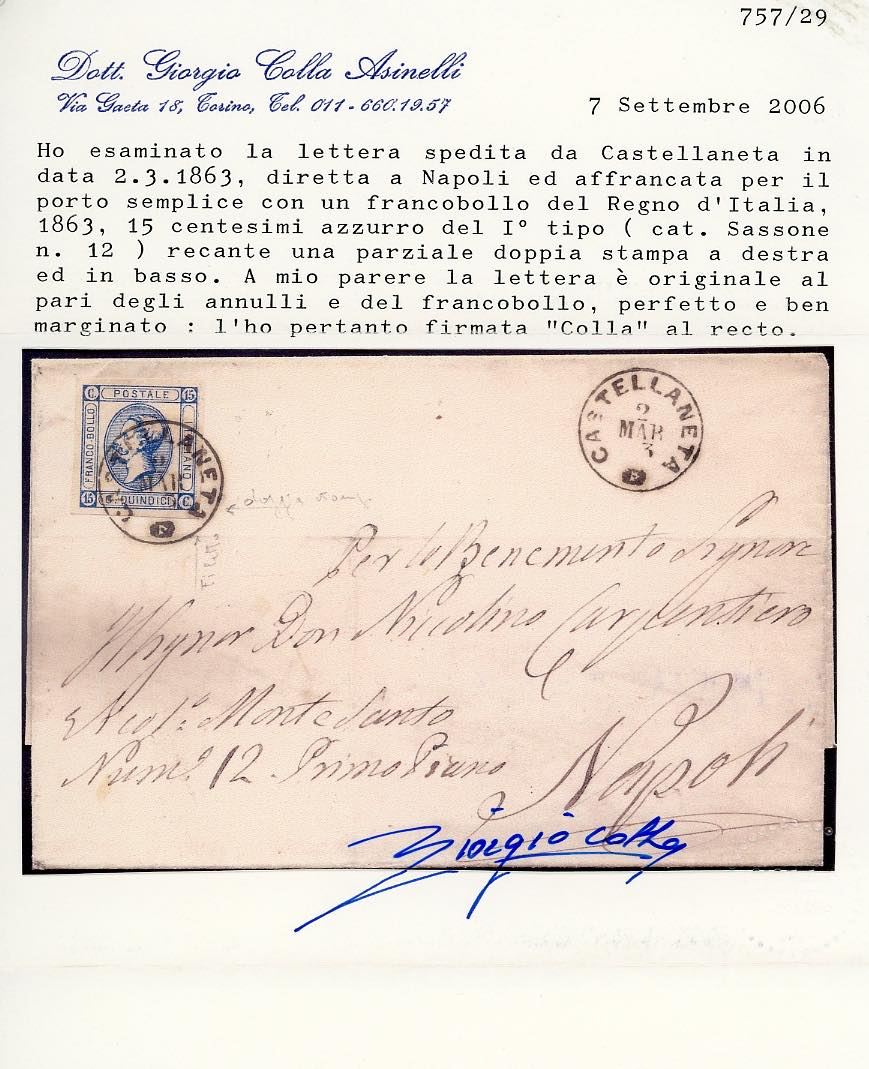 757/29
Dott. Giorgio Colla Asinelli
Via Gaeta 18, Torino, Tel. 011-660.19.57
7 Settembre 2006
Ho esaminato la lettera spedita da Castellaneta in
data 2.3.1863, diretta a Napoli ed affrancata per il
porto semplice con un francobollo del Regno d'Italia,
1863, 15 centesimi azzurro del I° tipo ( cat. Sassone
n. 12 ) recante una parziale doppia stampa a destra
ed in basso. A mio parere la lettera è originale al
pari degli annulli e del francobollo, perfetto e ben
marginato : l'ho pertanto firmata "Colla" al recto.
C. POSTALE 15
FRANCO-BOLLO
15 C. QUINDICI C.
CASTELLANETA
CASTELLANETA
2
MAR
3
Per lo Benemerito Signore
Don Niccolino Carpentiero
Monte Santo
Num.o 12 Primo Piano
Napoli
Giorgio Colla